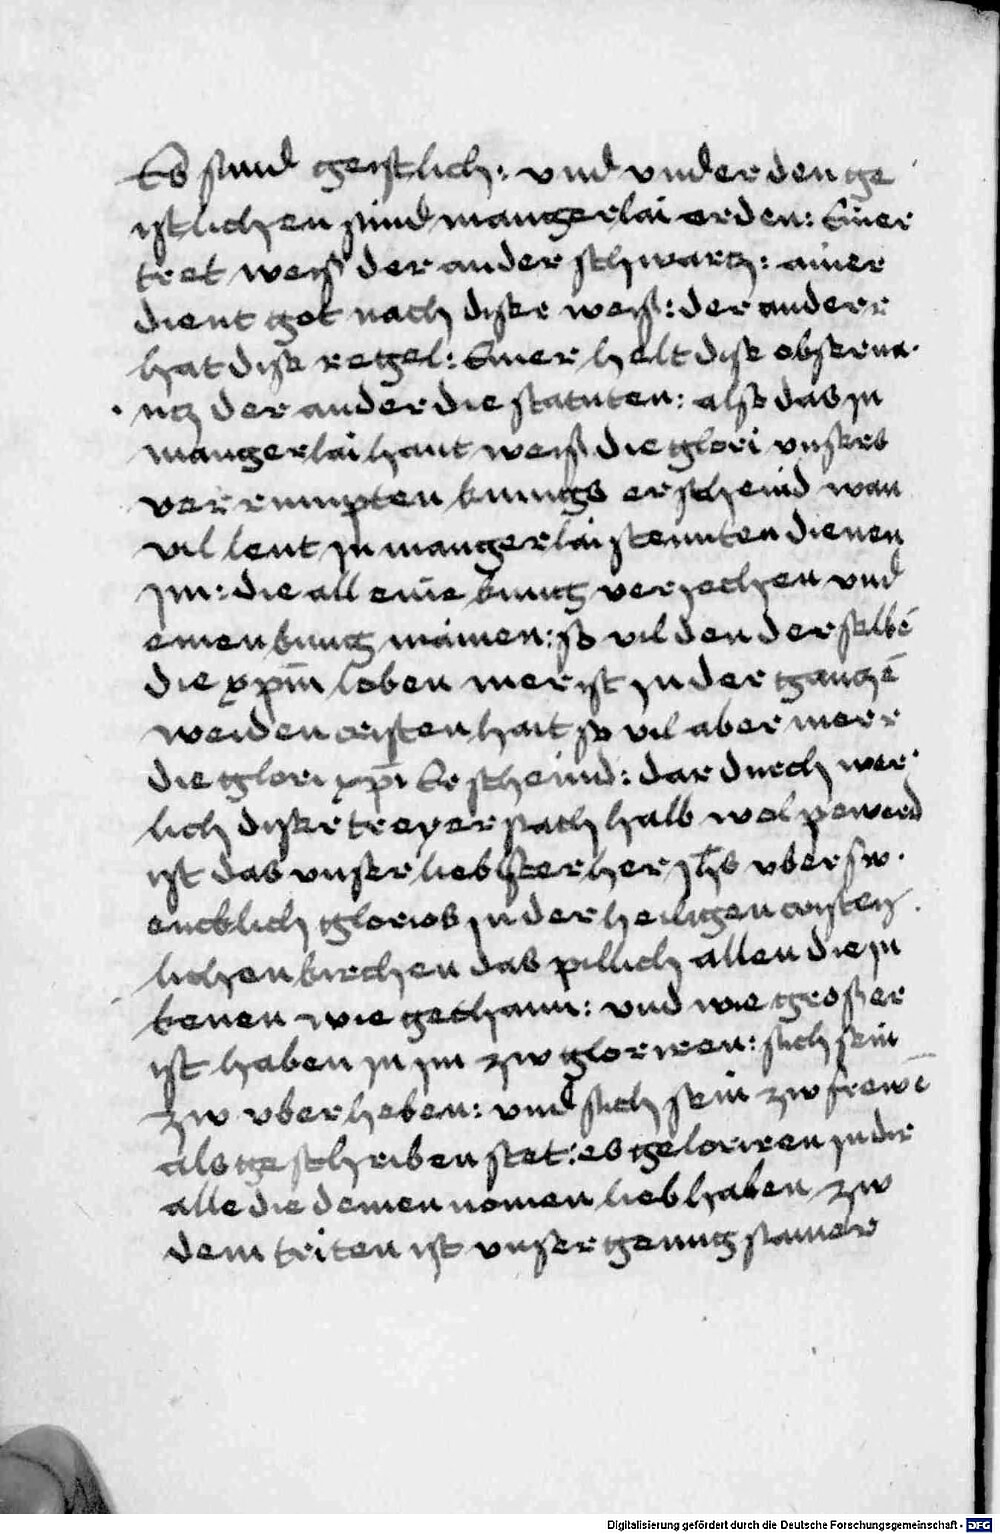 Es sind geistlich: vnd vnder den ge
istlichen sind mangerlai orden: Einer
tret weiß der ander schwartz: ainer
dient got nach diser weiß: der ander
hat dise regel: Einer helt dise obserua
ntz der ander die statuten: also das in
mangerlai hant weiß die glori vnsers
verrumpten kunigs erscheind wan
vil leut in mangerlai stennten dienen
im: die all eine kunig veriechen vnd
einen kunig mainen: so vil den der selbē
die xpm̄ loben mer ist in der gantzē
weiden cristenhait so vil aber merr
die glori xpī Erscheind: dar durch wer
lich diser treyer sach halb wol
ist das vnser liebster her Jhs vbersw
encklich glorios in der heiligen cristen
lichen kirchen das pillich allen die in
kenen wie gethann: vnd wie großer
ist haben in im zw gloriren: sich sein
zw vberheben: vnd sich sein zw frewē
als geschriben stet: es geloriren in dir
alle die deinen nomen lieb haben zw
dem triten ist vnser genug
Digitalisierung gefördert durch die Deutsche Forschungsgemeinschaft - DFG